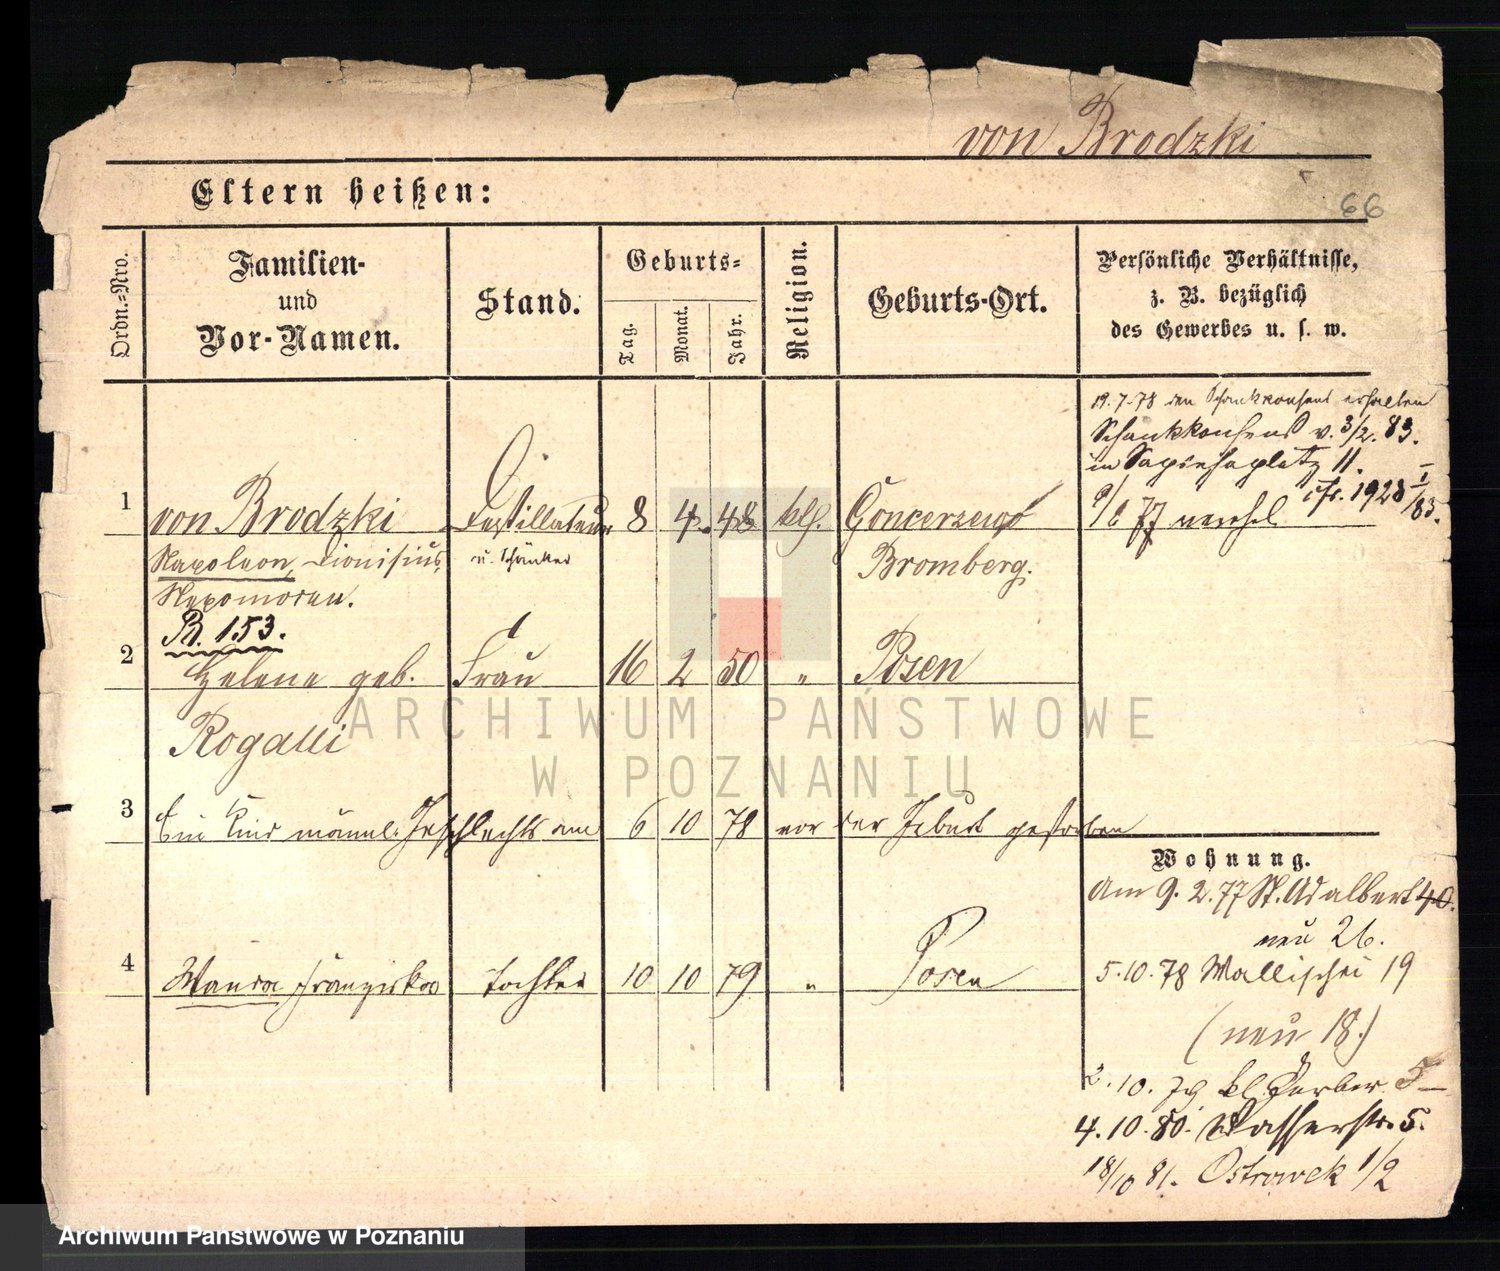 von Brodzki
Eltern heißen:
66
Ordn.-Nro.
Familien-
und
Vor-Namen.
Stand.
Geburts-
Tag.
Monat.
Jahr.
Religion.
Geburts-Ort.
Persönliche Verhältnisse,
z. B. bezüglich
des Gewerbes u. s. w.
19.7.78 den Schankkonsens erhalten
Schankkonsens v. 3/2. 83.
in Sapiehaplatz 11.
1 von Brodzki Destillateur 8 4. 48 kth.
Napoleon, Dionisius, u. Schänker Bromberg.
Nepomocen.
B. 153.
2 Helene geb. Frau 16 2 50 " Posen
Rogalli
3 Ein Kind männl. Geschlechts am 6 10 78 vor der Geburt gestorben
4 Wanda Franziska Tochter 10 10 79 " Posen
Wohnung.
Am 9. 2. 77 St. Adalbert 40.
neu 26.
5.10.78 Wallischei 19
(neu 18.)
2.10.79 kl. Gerber 5
4.10.80. Wasserstr. 5.
18/10 81. Ostrowek 1/2
ARCHIWUM PAŃSTWOWE
W POZNANIU
Archiwum Państwowe w Poznaniu